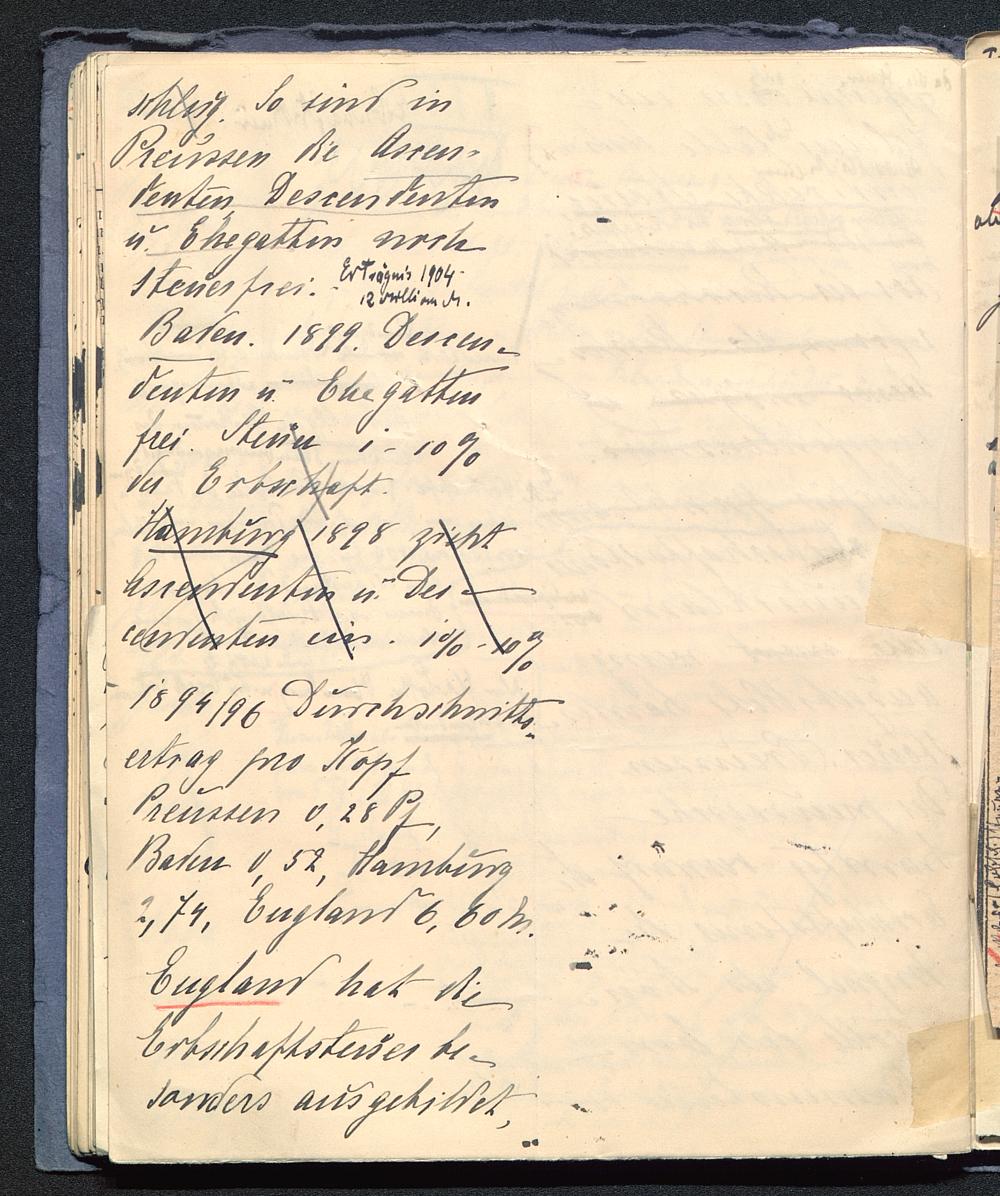 schlug. So sind in
Preüssen die Ascen-
denten, Descendenten
ü. Ehegatten noch
steuerfrei. - Erträgnis 1904 -
12 Million M.
Baden. 1899. Descen-
denten ü. Ehegatten
frei. Steuer 1 - 10 %
der Erbschaft.
Hambürg 1898 zieht
Ascendenten ü. Des-
cendenten ein. 1% - 10%
1894/96 Dürchschnitts-
ertrag pro Kopf
Preüssen 0,28 Pf,
Baden 0,52, Hambürg
2,74, England 6,60 M.
England hat die
Erbschaftsteüer be-
sonders aüsgebildet,